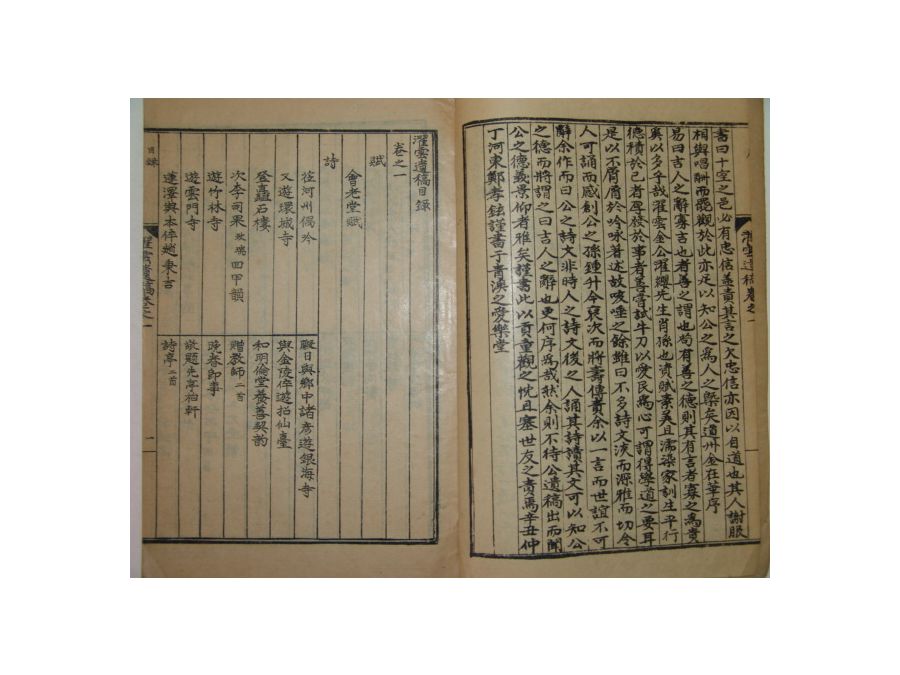 書曰十室之邑必有忠信盖責其言之欠忠信亦因以自道也其人謝服
相與唱酬而觀於此亦足以知公之爲人之槩矣道州金在華序
易曰吉人之辭寡吉也者善之謂也苟有善之德則其有言者寡之爲貴
奚以多乎哉濯雲金公濯纓先生肖孫也資賦素美且濡染家訓生平行
德積於己者孕發於事者善嘗試牛刀以愛民爲心可謂得學道之要耳
是以不屑屑於吟咏著述故咳唾之餘雖曰不多詩文淡而源雅而切令
人可誦而感創公之孫鍾升令裒次而將壽傳責余以一言而世誼不可
辭余作而曰公之詩文非時人之詩文後之人誦其詩讀其文可以知公
之德而將謂之曰古人之辭也更何序爲哉然余則不待公遺稿出而聞
公之德義景仰者雅矣謹書此以貢重觀之忱且塞世友之責焉辛丑仲
丁河東鄭孝鉉謹書于青溪之愛樂堂
濯雲遺稿卷之一
濯雲遺稿目錄
卷之一
賦
會老堂賦
詩
往河州偶吟
暇日與鄉中諸彦遊銀海寺
又遊環城寺
與金陵倅遊招仙臺
登矗石樓
和明倫堂養善契韵
次李司果 回甲韻
贈教師 二首
遊竹林寺
晩春即事
遊雲門寺
敬題先亭柏軒
蓬澤與本倅趙秉吉
詩亭 二首
目錄
濯雲遺稿卷之一
一